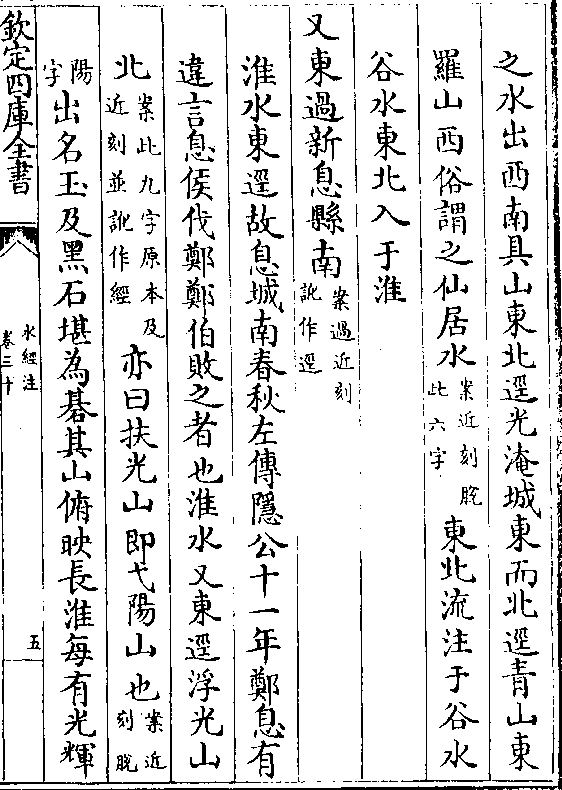 之水出西南具山東北逕光淹城東而北逕青山東
羅山西俗謂之仙居水案近刻脫此六字東北流注于谷水
谷水東北入于淮
又東過新息縣南案過近刻訛作逕
淮水東逕故息城南春秋左傳隱公十一年鄭息有
違言息侯伐鄭鄭伯敗之者也淮水又東逕浮光山
北案此九字原本及近刻並訛作經亦曰扶光山即弋陽山也案近刻脫
陽字出名玉及黑石堪為棊其山俯映長淮每有光輝
欽定四庫全書
水經注
卷三十
五